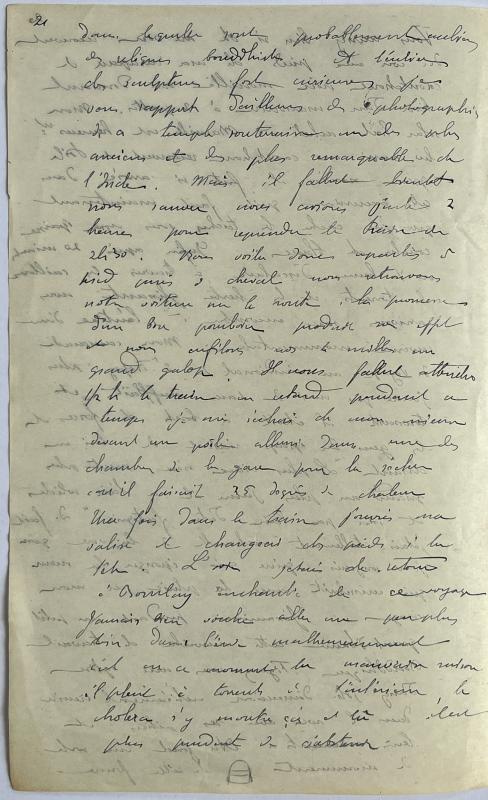 21
dans lesquelles sont probablement
de reliques bouddhistes. Et l'entrée
des sculptures fort curieuses
vous rapporte d'ailleurs des photographies
Ce temple souterrain un des
anciens et des plus remarquable de
l'Inde. Mais il fallut bientôt
nous sauver nous avions juste 2
heures pour reprendre le train de
2h30. Nous voila donc repartis à
pied puis à cheval nous retrouvons
notre voiture sur la route, la promesse
d'un bon pourboire produit son effet
et nous enfilons nos milles au
grand galop. Il nous fallut attendre
le train en retard pendant ce
temps
devant un poêle allumé dans une des
chambres de la gare pour la sécher
car il faisait 35 degrés de chaleur
Une fois dans le train j'ouvris ma
valise et changeai des pieds à la
tête. Le soir j'étais de retour
à Bombay enchanté de ce voyage
J'aurais voulu aller un peu plus
loin dans l'Inde malheureusement
c'est en ce moment la mauvaise saison
il pleut à torrents à l'intérieur, le
choléra s'y montre çà et là il est
plus prudent de s'abstenir